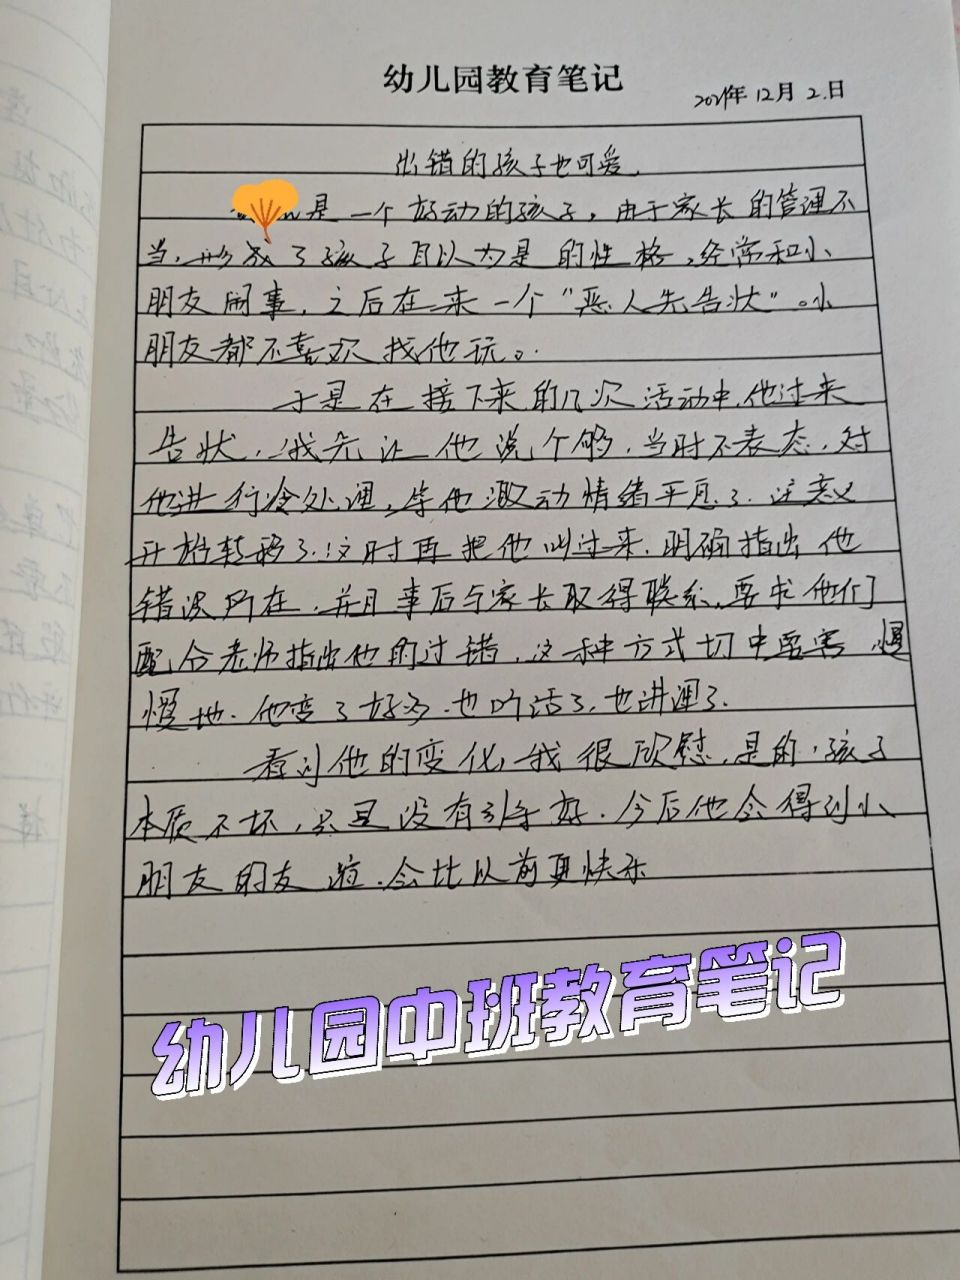 幼儿园教育笔记
2021年12月2日
出错的孩子也可爱
是一个好动的孩子，由于家长的管理不
当，形成了孩子自以为是的性格，经常和小
朋友闹事，之后在来一个“恶人先告状”。小
朋友都不喜欢找他玩。
于是在接下来的几次活动中，他过来
告状，我先让他说个够，当时不表态，对
他进行冷处理，等他激动情绪平息了，注意
开始转移了，这时再把他叫过来，明确指出他
错误所在，并且事后与家长取得联系，要求他们
配合老师指出他的过错，这种方式切中要害，慢
慢地，他变了好多，也听话了，也讲理了。
看到他的变化，我很欣慰，是的，孩子
本质不坏，只是没有引导好，今后他会得到小
朋友的友谊，会比以前更快乐
幼儿园中班教育笔记